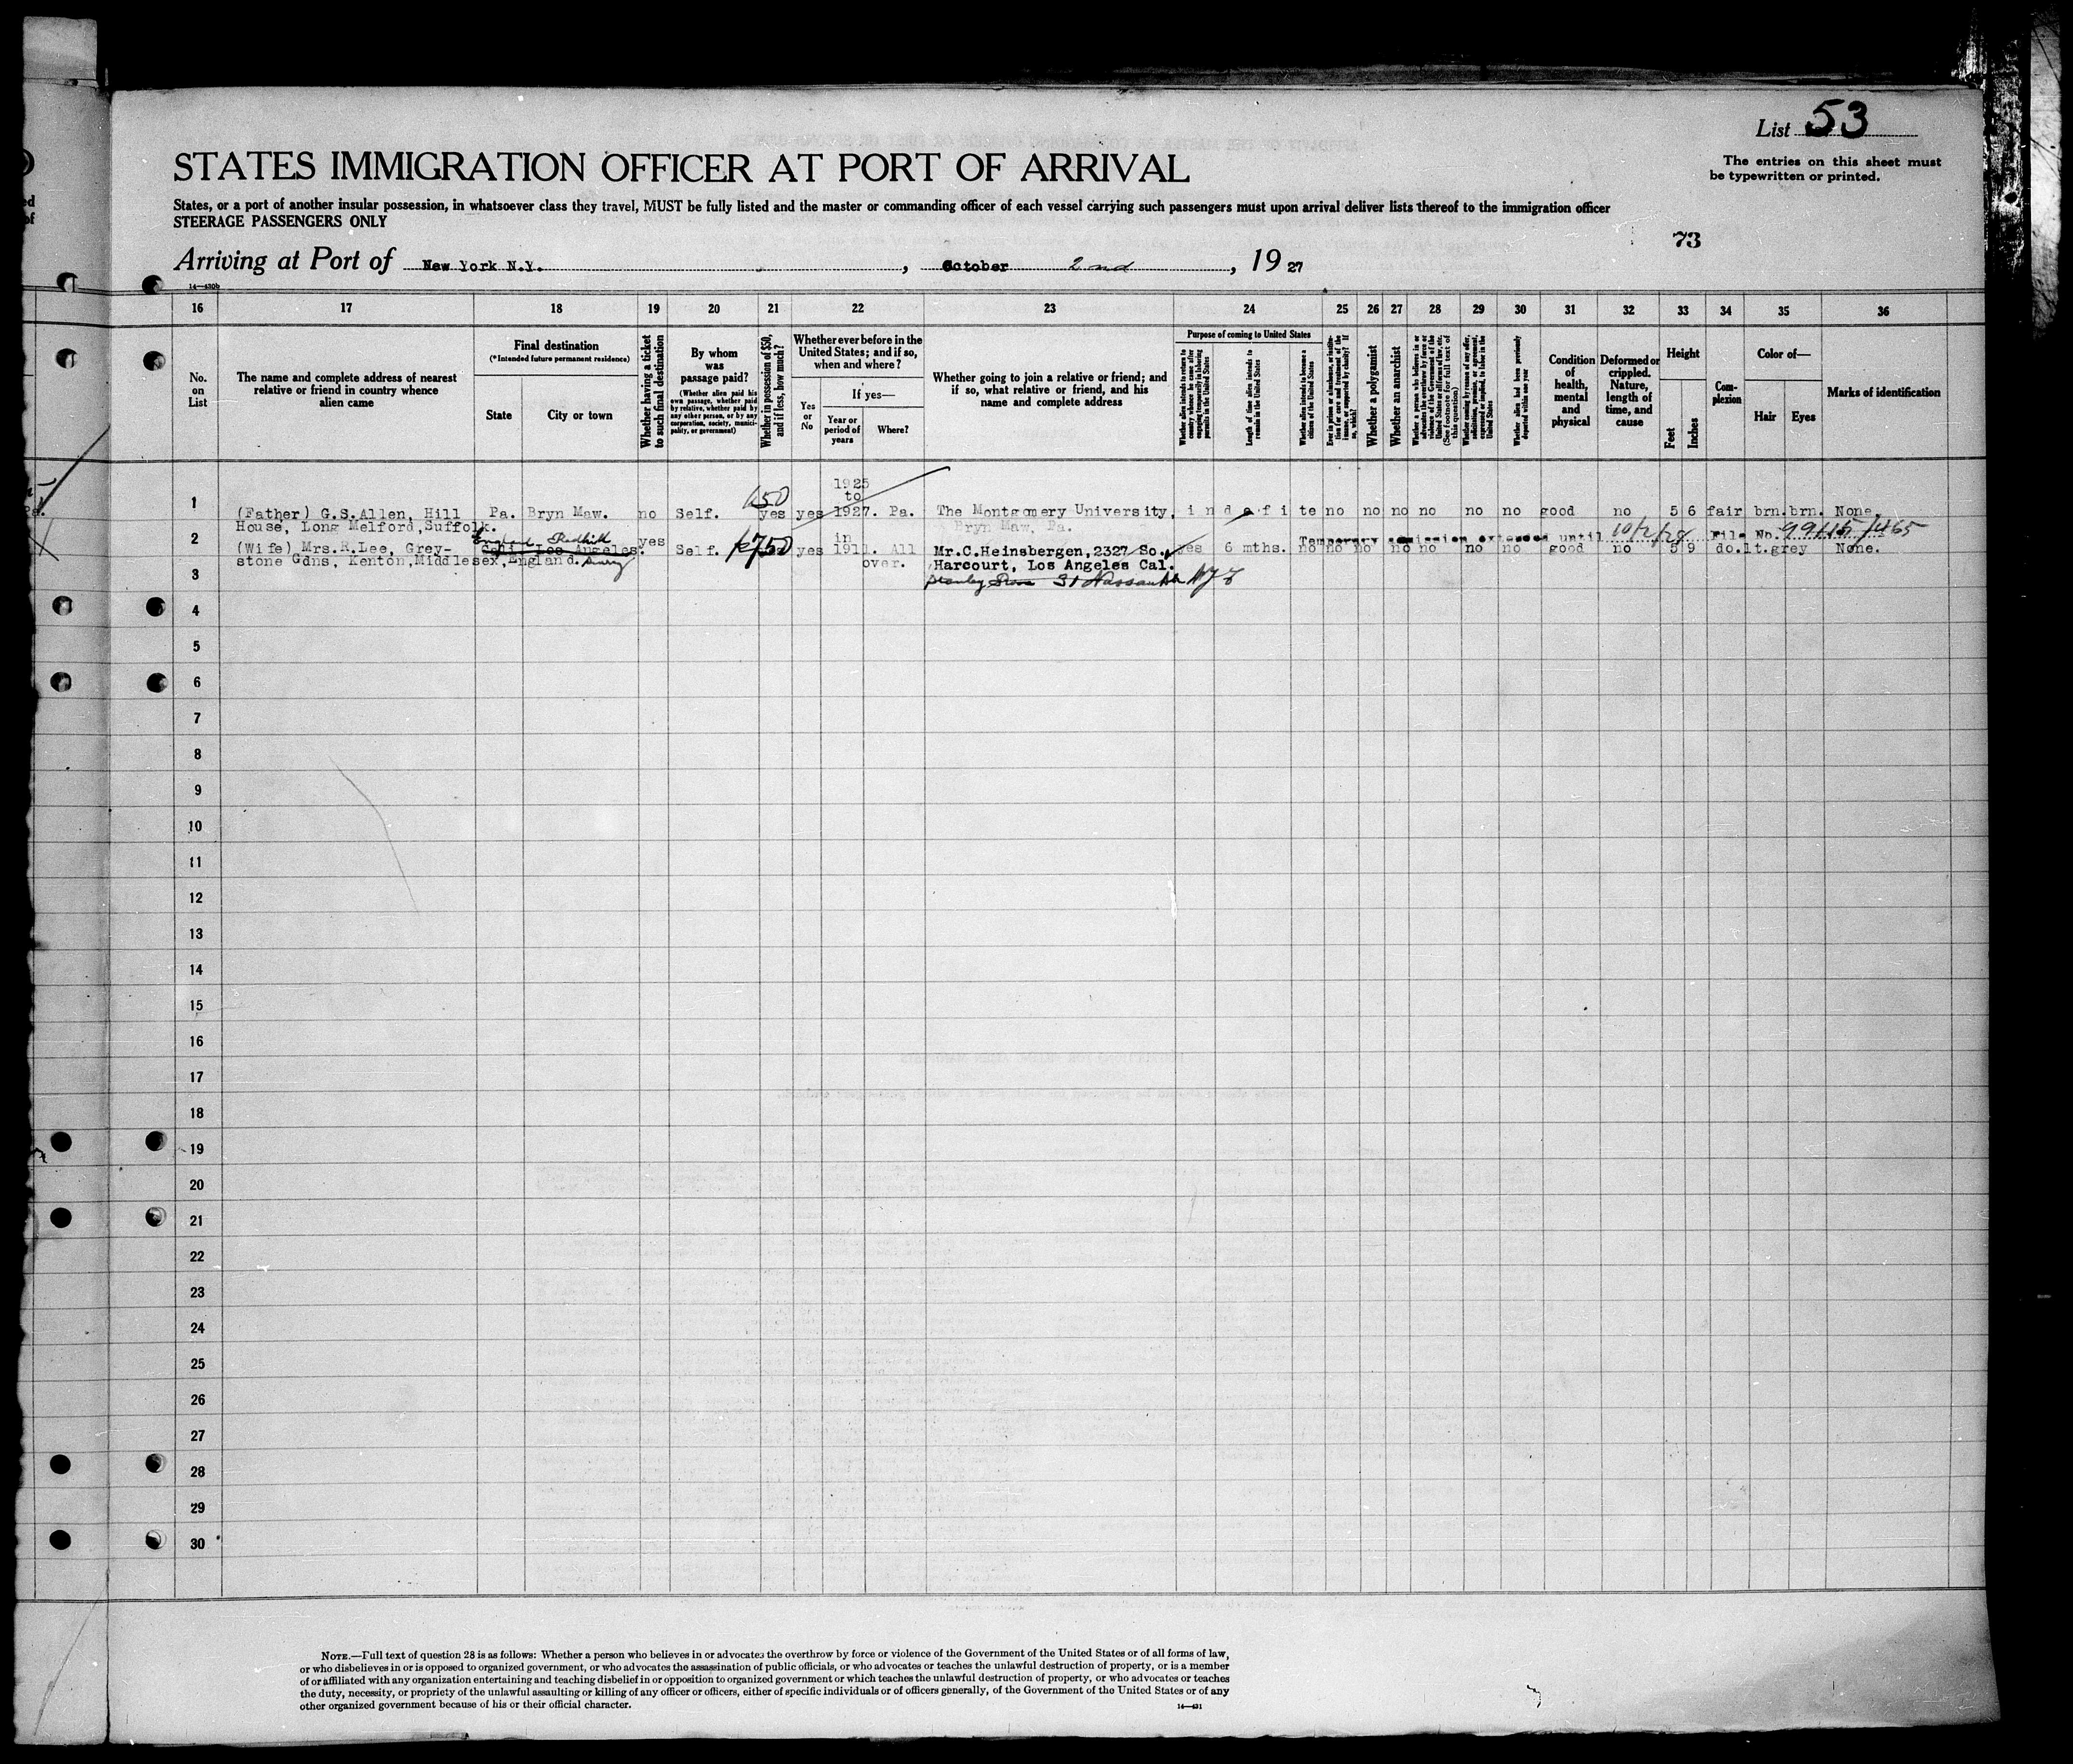 List 53
The entries on this sheet must
be typewritten or printed.
STATES IMMIGRATION OFFICER AT PORT OF ARRIVAL
States, or a port of another insular possession, in whatsoever class they travel, MUST be fully listed and the master or commanding officer of each vessel carrying such passengers must upon arrival deliver lists thereof to the immigration officer
STEERAGE PASSENGERS ONLY
73
Arriving at Port of New York N.Y. , October 2nd , 19 27
14—430b
16 17 18 19 20 21 22 23 24 25 26 27 28 29 30 31 32 33 34 35 36
No.
on
List
The name and complete address of nearest
relative or friend in country whence
alien came
Final destination
(*Intended future permanent residence)
State
City or town
Whether having a ticket
to such final destination
By whom
was
passage paid?
(Whether alien paid his
own passage, whether paid
by relative, whether paid by
any other person, or by any
corporation, society, munici-
pality, or government)
Whether in possession of $50,
and if less, how much?
Whether ever before in the
United States; and if so,
when and where?
Yes
or
No
If yes—
Year or
period of
years
Where?
Whether going to join a relative or friend; and
if so, what relative or friend, and his
name and complete address
Purpose of coming to United States
Whether alien intends to return to
country whence he came after
engaging temporarily in laboring
pursuits in the United States
Length of time alien intends to
remain in the United States
Whether alien intends to become a
citizen of the United States
Ever in prison or almshouse, or institu-
tion for care and treatment of the
insane, or supported by charity? If
so, which?
Whether a polygamist
Whether an anarchist
Whether a person who believes in or
advocates the overthrow by force or
violence of the Government of the
United States or all forms of law, etc.
(See footnote for full text of
this question)
Whether coming by reason of any offer,
solicitation, promise, or agreement,
expressed or implied, to labor in the
United States
Whether alien had been previously
deported within one year
Condition
of
health,
mental
and
physical
Deformed or
crippled.
Nature,
length of
time, and
cause
Height
Feet
Inches
Com-
plexion
Color of—
Hair
Eyes
Marks of identification
650
1925
to
1 (Father) G.S.Allen, Hill Pa. Bryn Maw. no Self. yes yes 1927. Pa. The Montgomery University, indefinite no no no no no no good no 5 6 fair brn. brn. None.
House, Long Melford,Suffolk. Bryn Maw, Pa.
England Redhill
Temporary admission extended until 10/2/28 File No. 99415/465
2 (Wife) Mrs.R.Lee, Grey- Cali. Los Angeles. yes Self. 750 yes in 1911. All Mr.C.Heinsbergen,2327 So. yes 6 mths. no no no no no no no good no 5 9 do. lt. grey None.
stone Gdns, Kenton,Middlesex,England. over. Harcourt, Los Angeles Cal.
3
4
5
6
7
8
9
10
11
12
13
14
15
16
17
18
19
20
21
22
23
24
25
26
27
28
29
30
NOTE.—Full text of question 28 is as follows: Whether a person who believes in or advocates the overthrow by force or violence of the Government of the United States or of all forms of law,
or who disbelieves in or is opposed to organized government, or who advocates the assassination of public officials, or who advocates or teaches the unlawful destruction of property, or is a member
of or affiliated with any organization entertaining and teaching disbelief in or opposition to organized government or which teaches the unlawful destruction of property, or who advocates or teaches
the duty, necessity, or propriety of the unlawful assaulting or killing of any officer or officers, either of specific individuals or of officers generally, of the Government of the United States or of any
other organized government because of his or their official character.
14—431